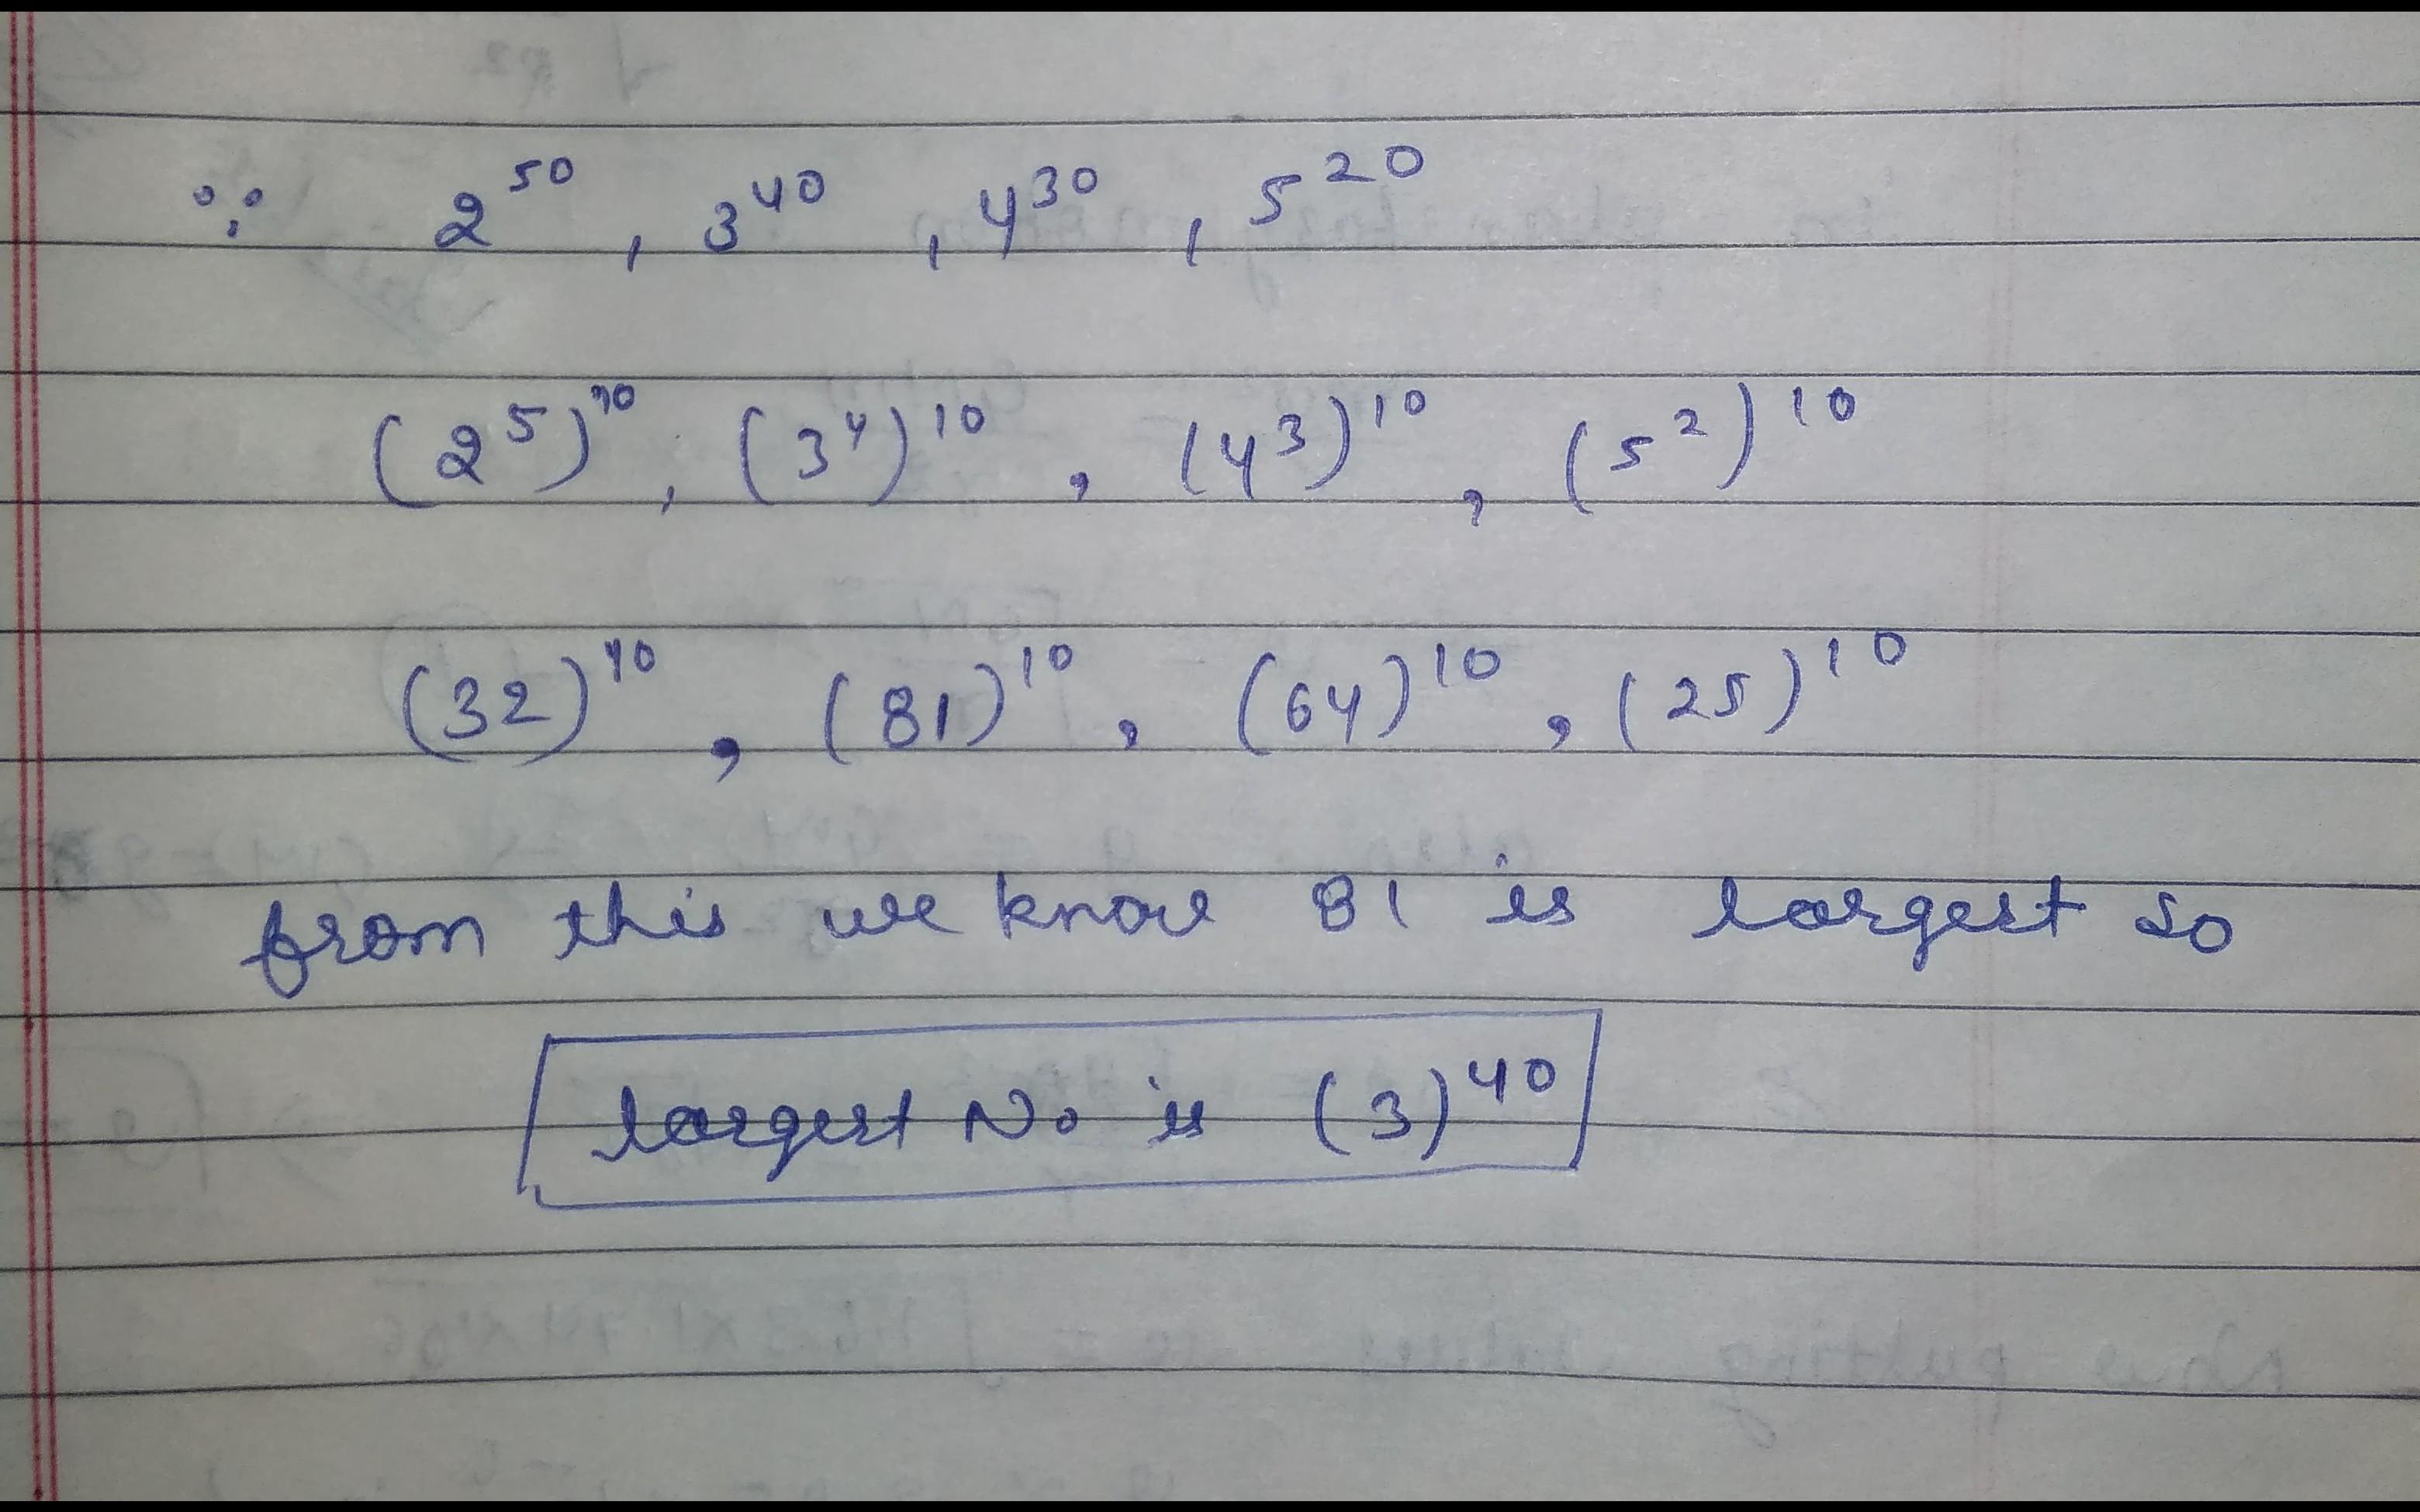 ∵ 2^50, 3^40, 4^30, 5^20
(2^5)^10, (3^4)^10, (4^3)^10, (5^2)^10
(32)^10, (81)^10, (64)^10, (25)^10
from this we know 81 is largest so
largest No is (3)^40